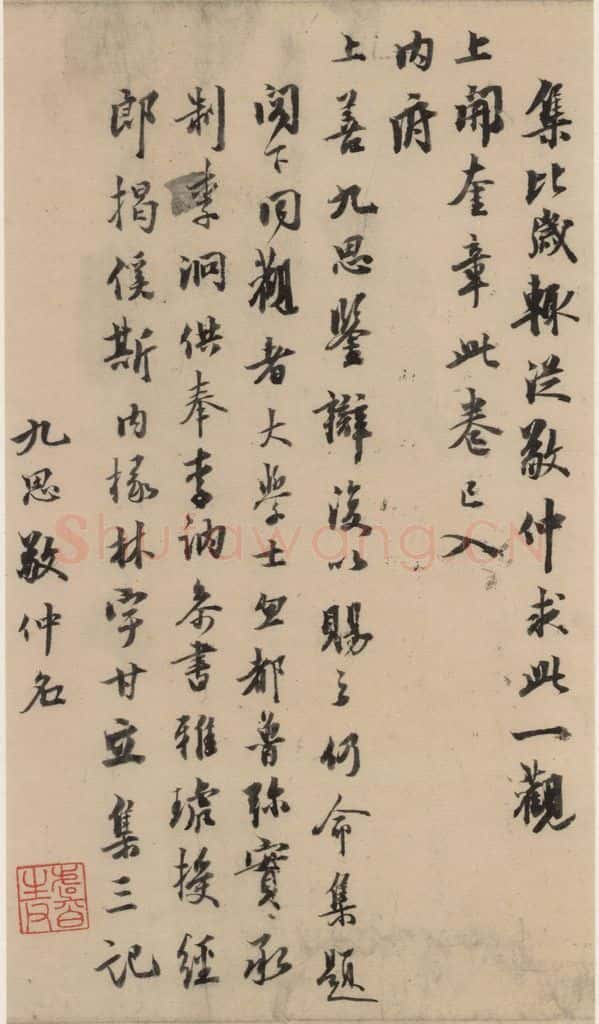 集比歲輒從敬仲求此一觀
上開奎章此卷已入
内府
上善九思鑒辯復以賜之仍命集題
閣下同觀者大學士忽都魯弥實承
制李泂供奉李訥參書雅琥授經
郎揭傒斯内掾林宇甘立集三記
九思敬仲名
Shufawang.CN